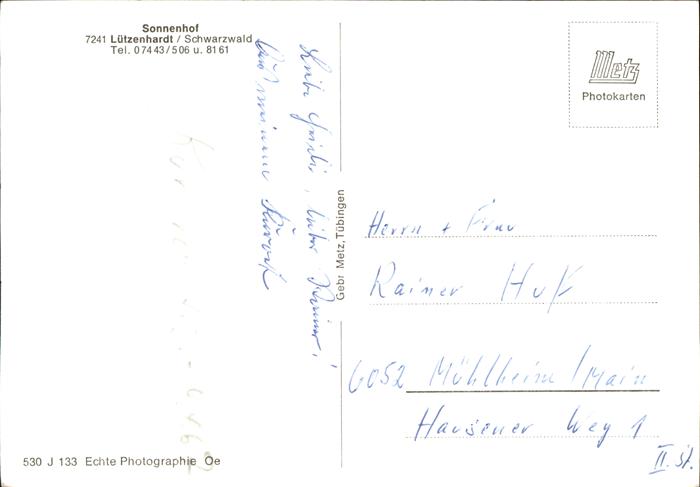 Sonnenhof
7241 Lützenhardt / Schwarzwald
Tel. 07443/506 u. 8161
Metz
Photokarten
Gebr Metz, Tübingen
Liebe lieber Rainer!
Aus meinem
Herrn + Frau
Rainer Huk
6052 Mühlheim/Main
Hausener Weg 1
II. St.
530 J 133 Echte Photographie Oe